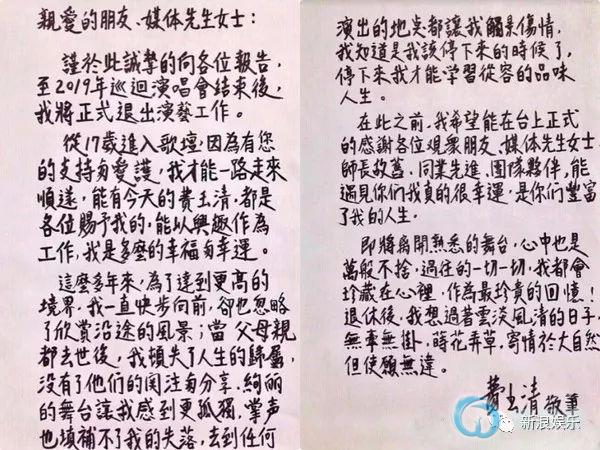 親愛的朋友、媒体先生女士：
謹於此誠摯的向各位報告，
至2019年巡迴演唱會結束後，
我將正式退出演藝工作。
從17歲進入歌壇，因為有您
的支持与愛護，我才能一路走來
順遂，能有今天的費玉清，都是
各位賜予我的，能以興趣作為
工作，我是多麼的幸福与幸運。
這麼多年來，為了達到更高的
境界，我一直快步向前，卻也忽略
了欣賞沿途的風景；當父母親
都去世後，我頓失了人生的歸屬，
沒有了他們的関注与分享，絢麗
的舞台讓我感到更孤獨，掌声
也填補不了我的失落，去到任何
演出的地点都讓我觸景傷情，
我知道是我該停下來的時候了，
停下來我才能學習從容的品味
人生。
在此之前，我希望能在台上正式
的感謝各位观眾朋友、媒体先生女士、
師長故舊、同業先進、團隊夥伴，能
遇見你們我真的很幸運，是你們豐富
了我的人生。
即將离開熟悉的舞台，心中也是
萬般不捨，過往的一切一切，我都會
珍藏在心裡，作為最珍貴的回憶！
退休後，我想過著雲淡風清的日子，
無牽無掛，蒔花弄草，寄情於大自然
但使願無違。
費玉清 敬筆
新浪娱乐